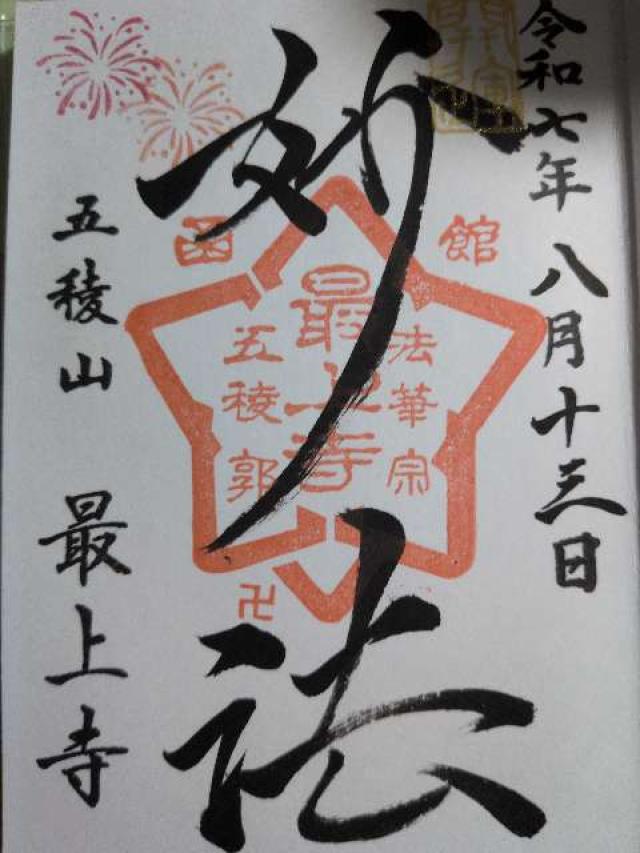 令和七年 八月十三日
妙法
函
館
法華宗
最上寺
五稜郭
卍
五稜山 最上寺